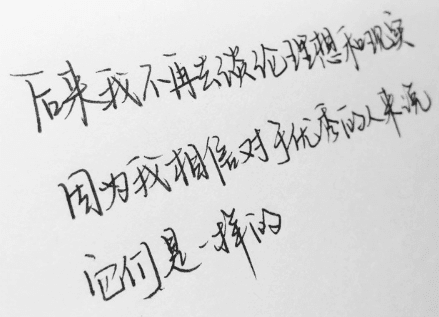 后来我不再去谈论理想和现实
因为我相信对于优秀的人来说
它们是一样的